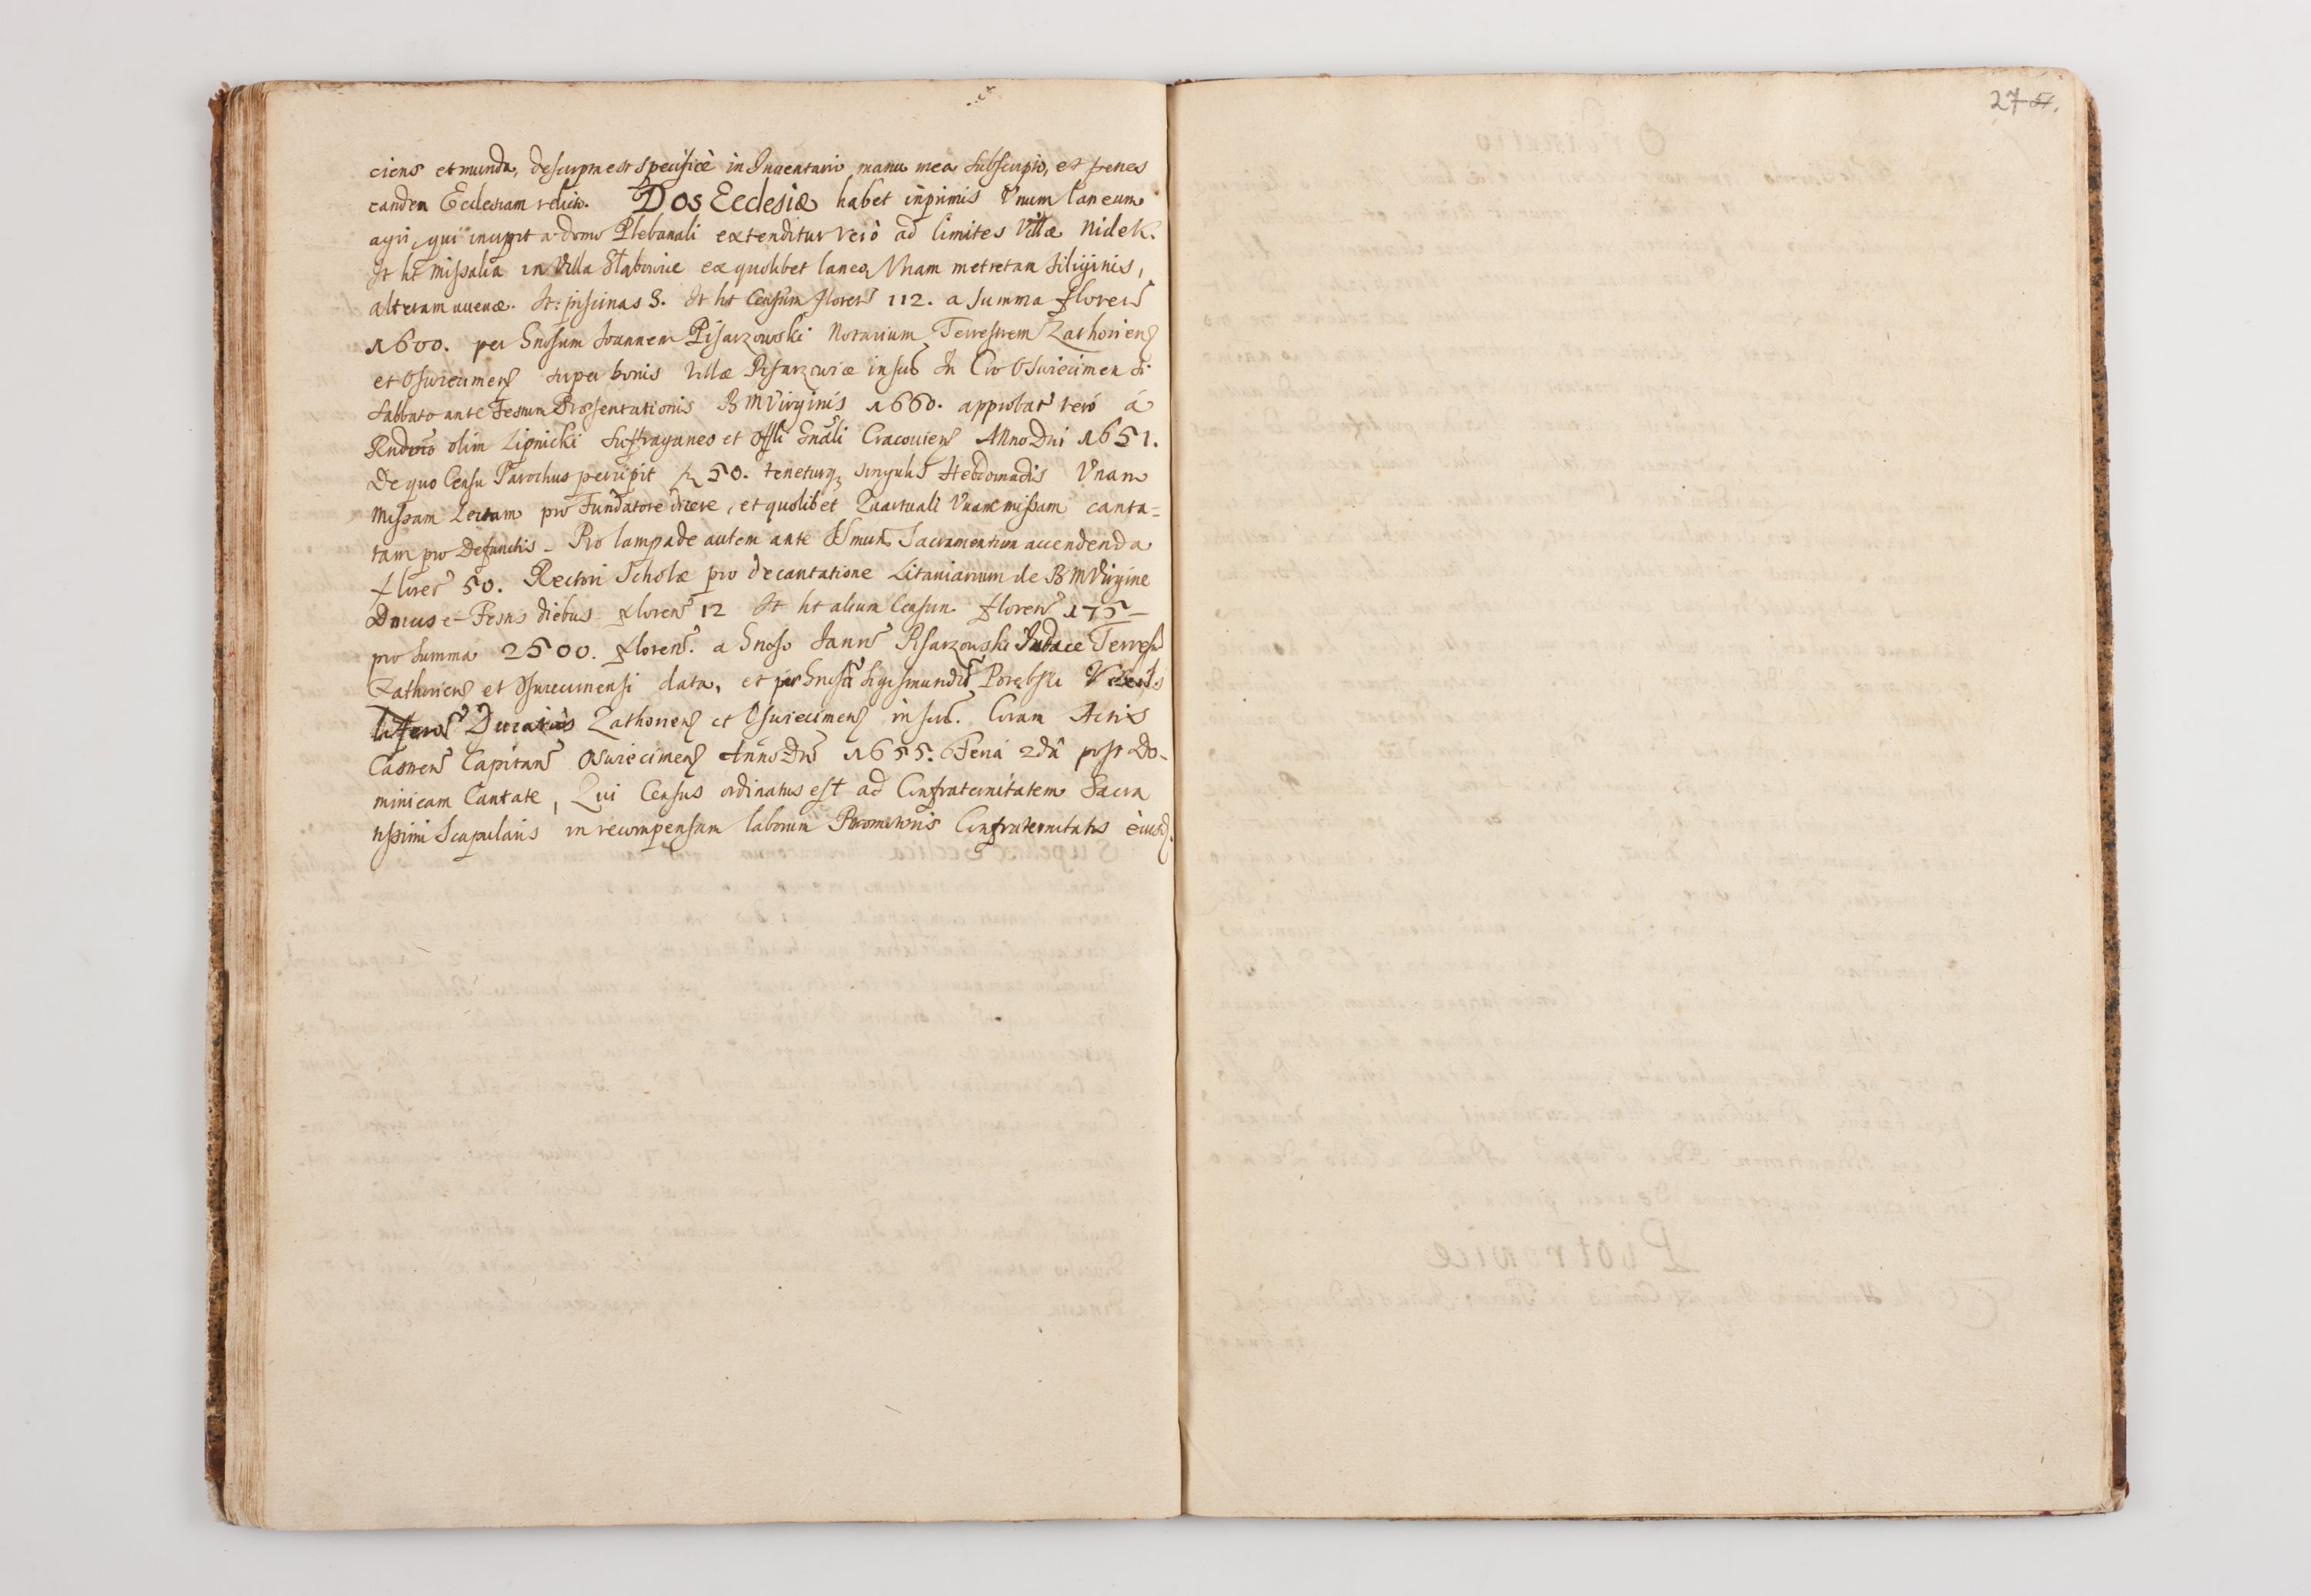 ciens et munda, descripta est specificè in Inuentario manu mea subscripto, et penes
eandem Ecclesiam relicto. Dos Ecclesiæ habet inprimis Vnum laneum
agri, qui incipit a domo Plebanali extenditur verò ad limites Villæ Nidek.
It ht Missalia in Villa Głąbowice ex quolibet laneo Vnam metretam siliginis,
alteram auenæ. It: piscinas 3. It ht Censum floren 112. a Summa floren
1600. per Gnosum Ioannem Pisarzowski Notarium Terrestrem Zathorien
et Osuiecimen super bonis Villæ Pisarzowice inscr In Cro Osuiecimen
Sabbato ante Festum Præsentationis B M Virginis 1660. approbat verò á
Rndmo olim Lipnicki Suffraganeo et Offli Gnali Cracouien Anno Dni 1651.
De quo Censu Parochus percipit fl 50. teneturq singulis Hebdomadis Vnam
Missam Lectam pro Fundatore dicere, et quolibet Quartuali Vnam missam canta-
tam pro Defunctis - Pro lampade autem ante SSmum Sacramentum accendenda
floren 50. Rectori Scholæ pro decantatione Litaniarum de B M Virgine
Dnicis et Festis diebus floren 12 It ht alium Censum floren 175 -
pro Summa 2500. floren. a Gnoso Ianne Pisarzowski Iudice Terrestr
Zathorien et Osuiecimensi data, et per Gnosum Sigismundum Porębski
Ducatus Zathorien et Osuiecimen inscr. Coram Actis
Castren Capitan Osuiecimen Anno Dni 1655. Feria 2dâ post Do-
minicam Cantate, Qui Census ordinatus est ad Confraternitatem Sacra
tissimi Scapularis in recompensam laborum Promotoris Confraternitatis eiusd.
27 51.